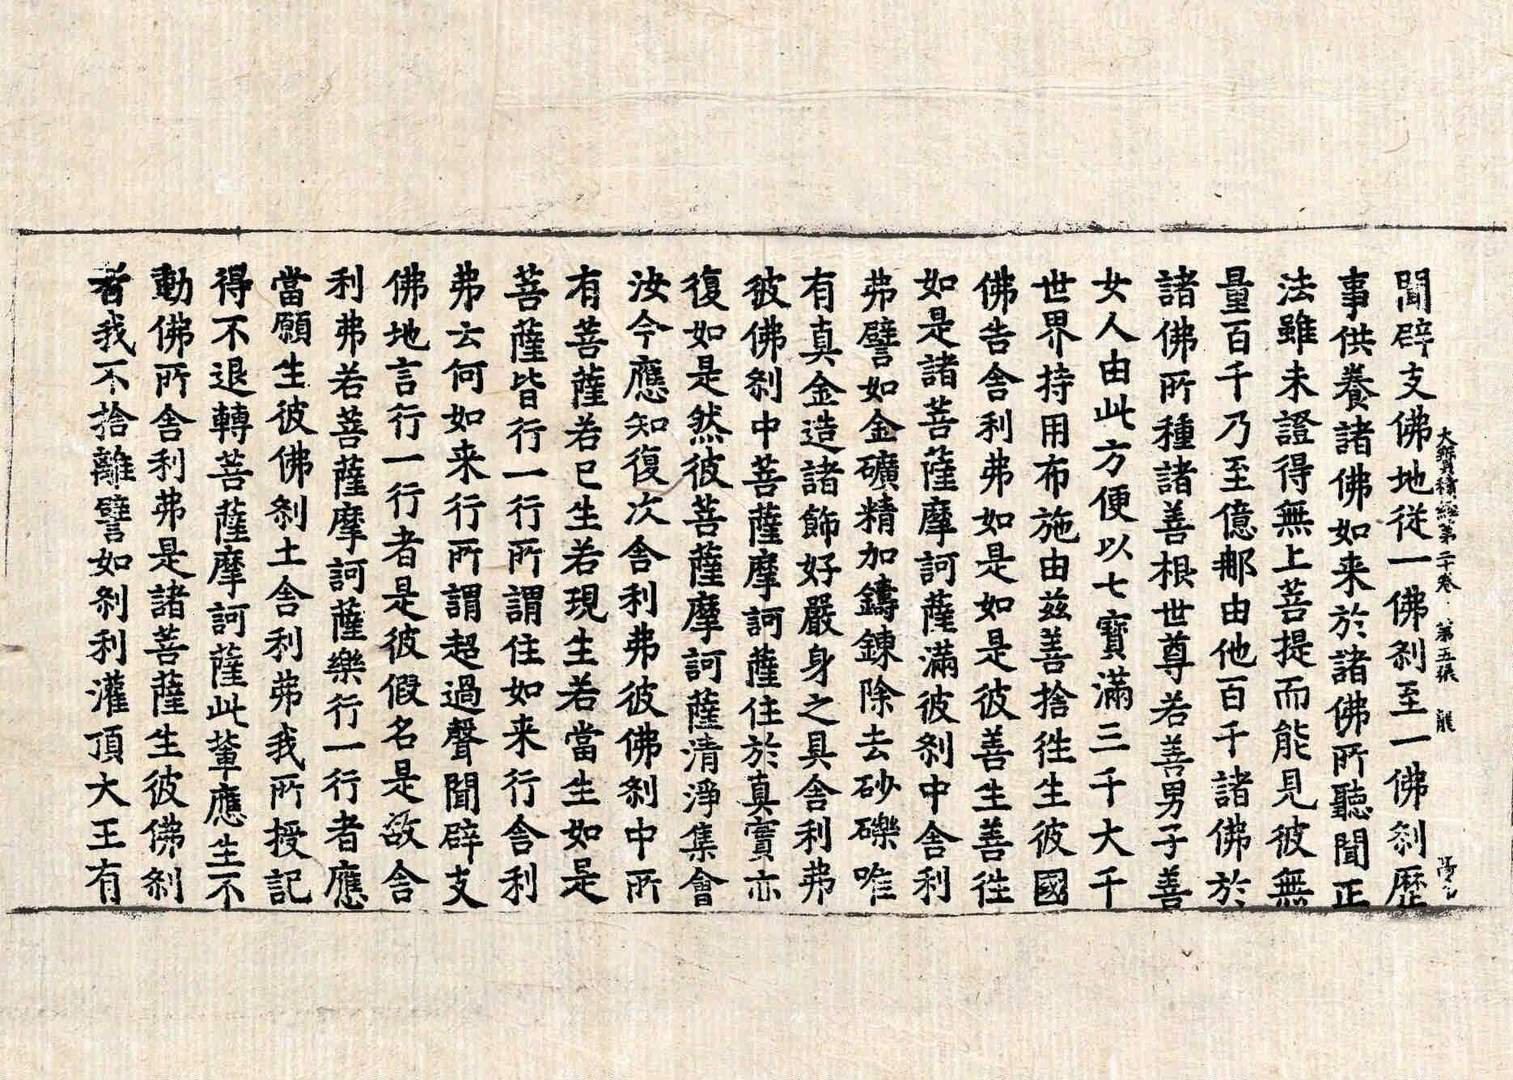 大寶積經第二十卷 第五張 龍
聞辟支佛地從一佛刹至一佛刹歷
事供養諸佛如来於諸佛所聽聞正
法雖未證得無上菩提而能見彼無
量百千乃至億𨙻由他百千諸佛於
諸佛所種諸善根世尊若善男子善
女人由此方便以七寳滿三千大千
世界持用布施由兹善捨徃生彼國
佛告舎利弗如是如是彼善生善徃
如是諸菩薩摩訶薩滿彼刹中舎利
弗譬如金礦精加鑄鍊除去砂礫唯
有真金造諸飾好嚴身之具舎利弗
彼佛刹中菩薩摩訶薩住於真實亦
復如是然彼菩薩摩訶薩清淨集會
汝今應知復次舎利弗彼佛刹中所
有菩薩若已生若現生若當生如是
菩薩皆行一行所謂住如来行舎利
弗云何如来行所謂超過聲聞辟支
佛地言行一行者是彼假名是故舎
利弗若菩薩摩訶薩樂行一行者應
當願生彼佛刹土舎利弗我所授記
得不退轉菩薩摩訶薩此軰應生不
動佛所舎利弗是諸菩薩生彼佛刹
者我不捨離譬如刹利灌頂大王有